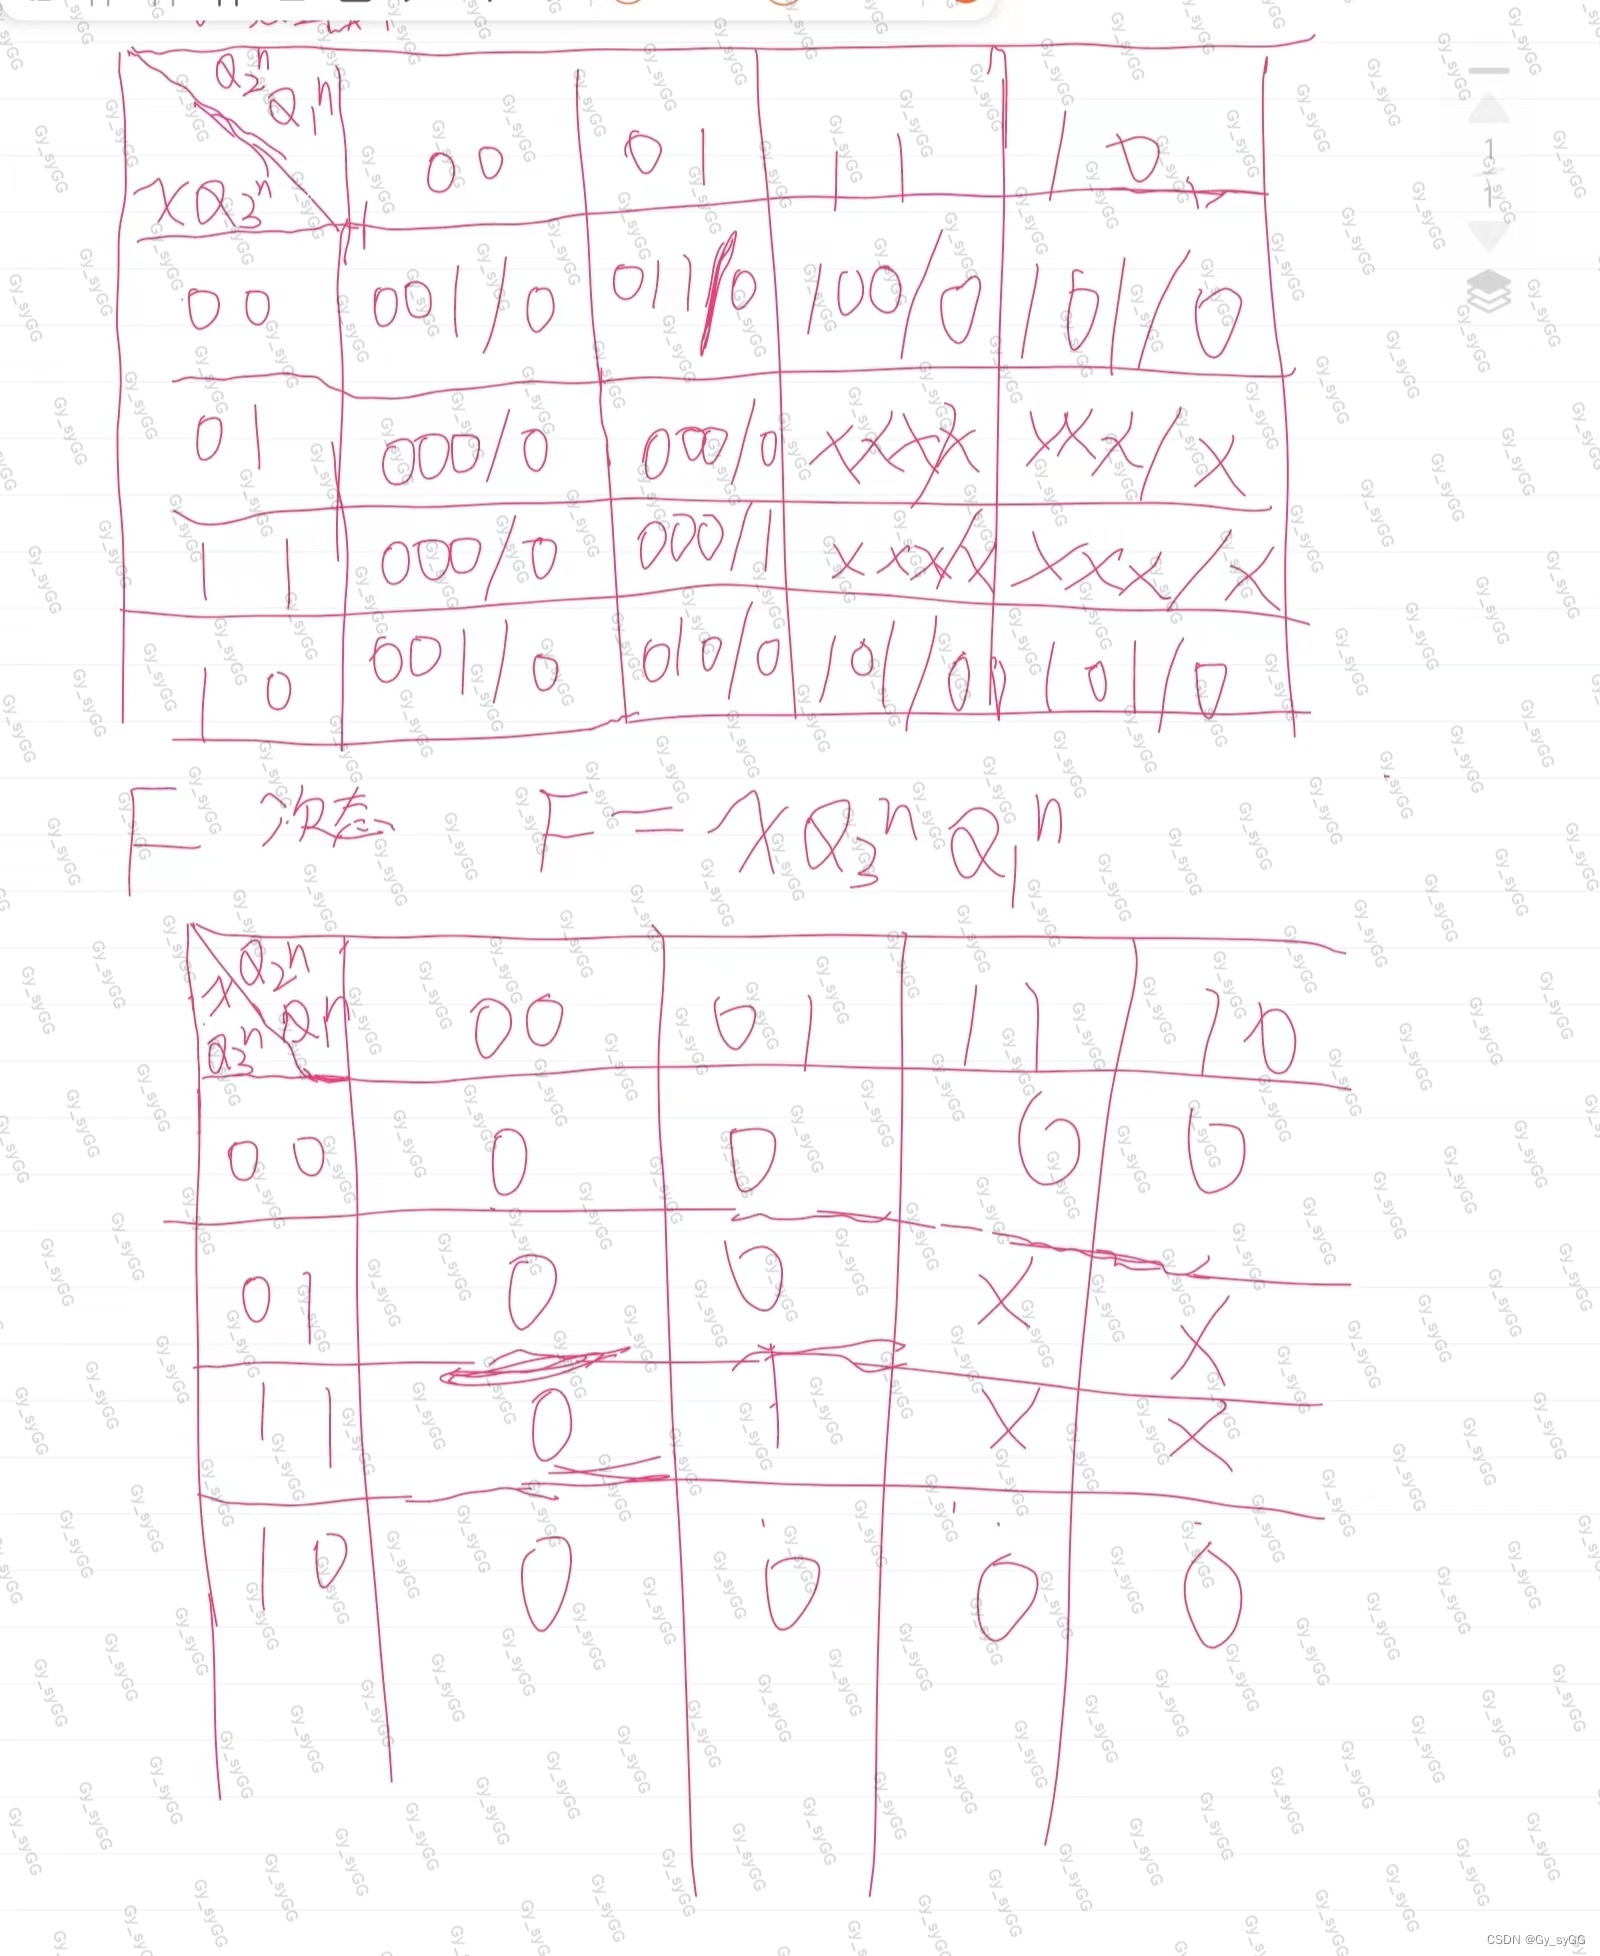 Q₂ⁿ Q₁ⁿ 00 01 11 10
XQ₃ⁿ
00 001/0 011/0 100/0 101/0
01 000/0 000/0 xxx/x xxx/x
11 000/0 000/1 xxx/x xxx/x
10 001/0 010/0 101/0 101/0
F 次态 F = XQ₃ⁿQ₁ⁿ
Q₂ⁿ Q₁ⁿ 00 01 11 10
X Q₃ⁿ
00 0 0 0 0
01 0 0 x x
11 0 1 x x
10 0 0 0 0
1
1
Gy_syGG
CSDN @Gy_syGG